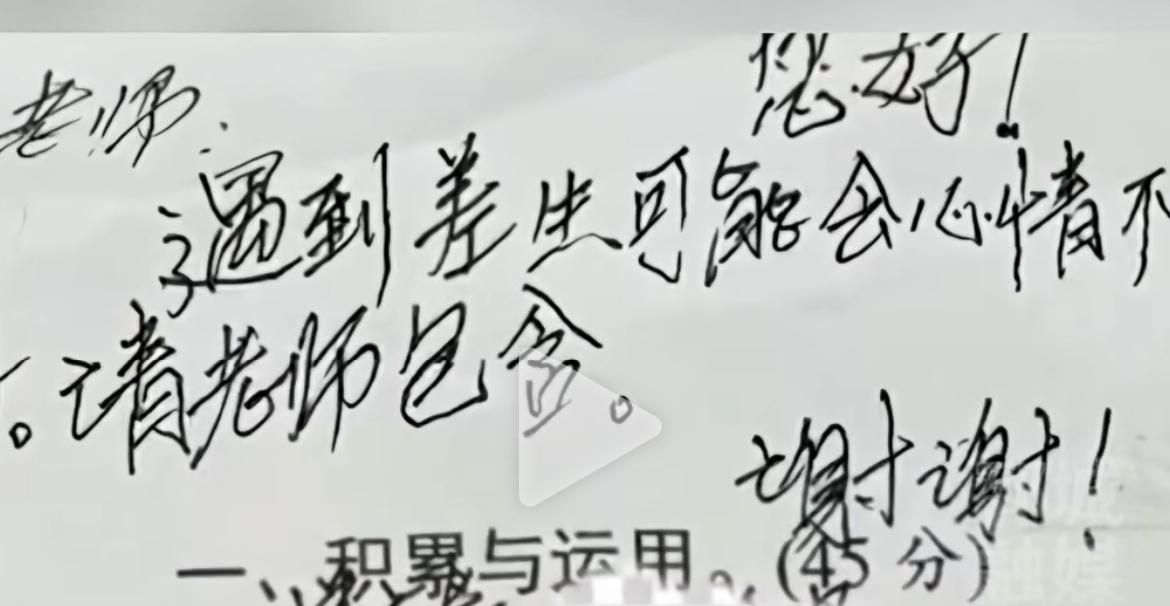 老师:
您好!
遇到差生可能会心情不
。请老师包含。
谢谢!
一、积累与运用。(45分)
融媒